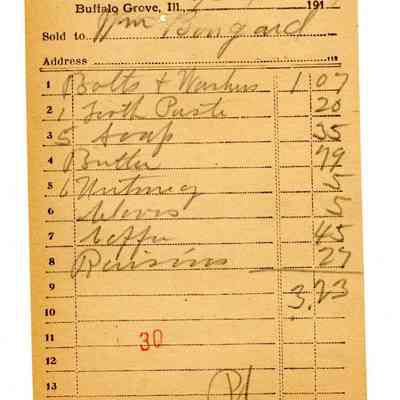 Buffalo Grove, Ill. 191
Sold to Wm Bongard
Address 
1 Bolts & Washers 1 07
2 1 Tooth Paste 20
3 5 Soap 35
4 Butter 79
5 6 Nutmeg 5
6 Cloves 5
7 Coffee 45
8 Raisins 27
9 3.23
10
11 30
12
13 Pd